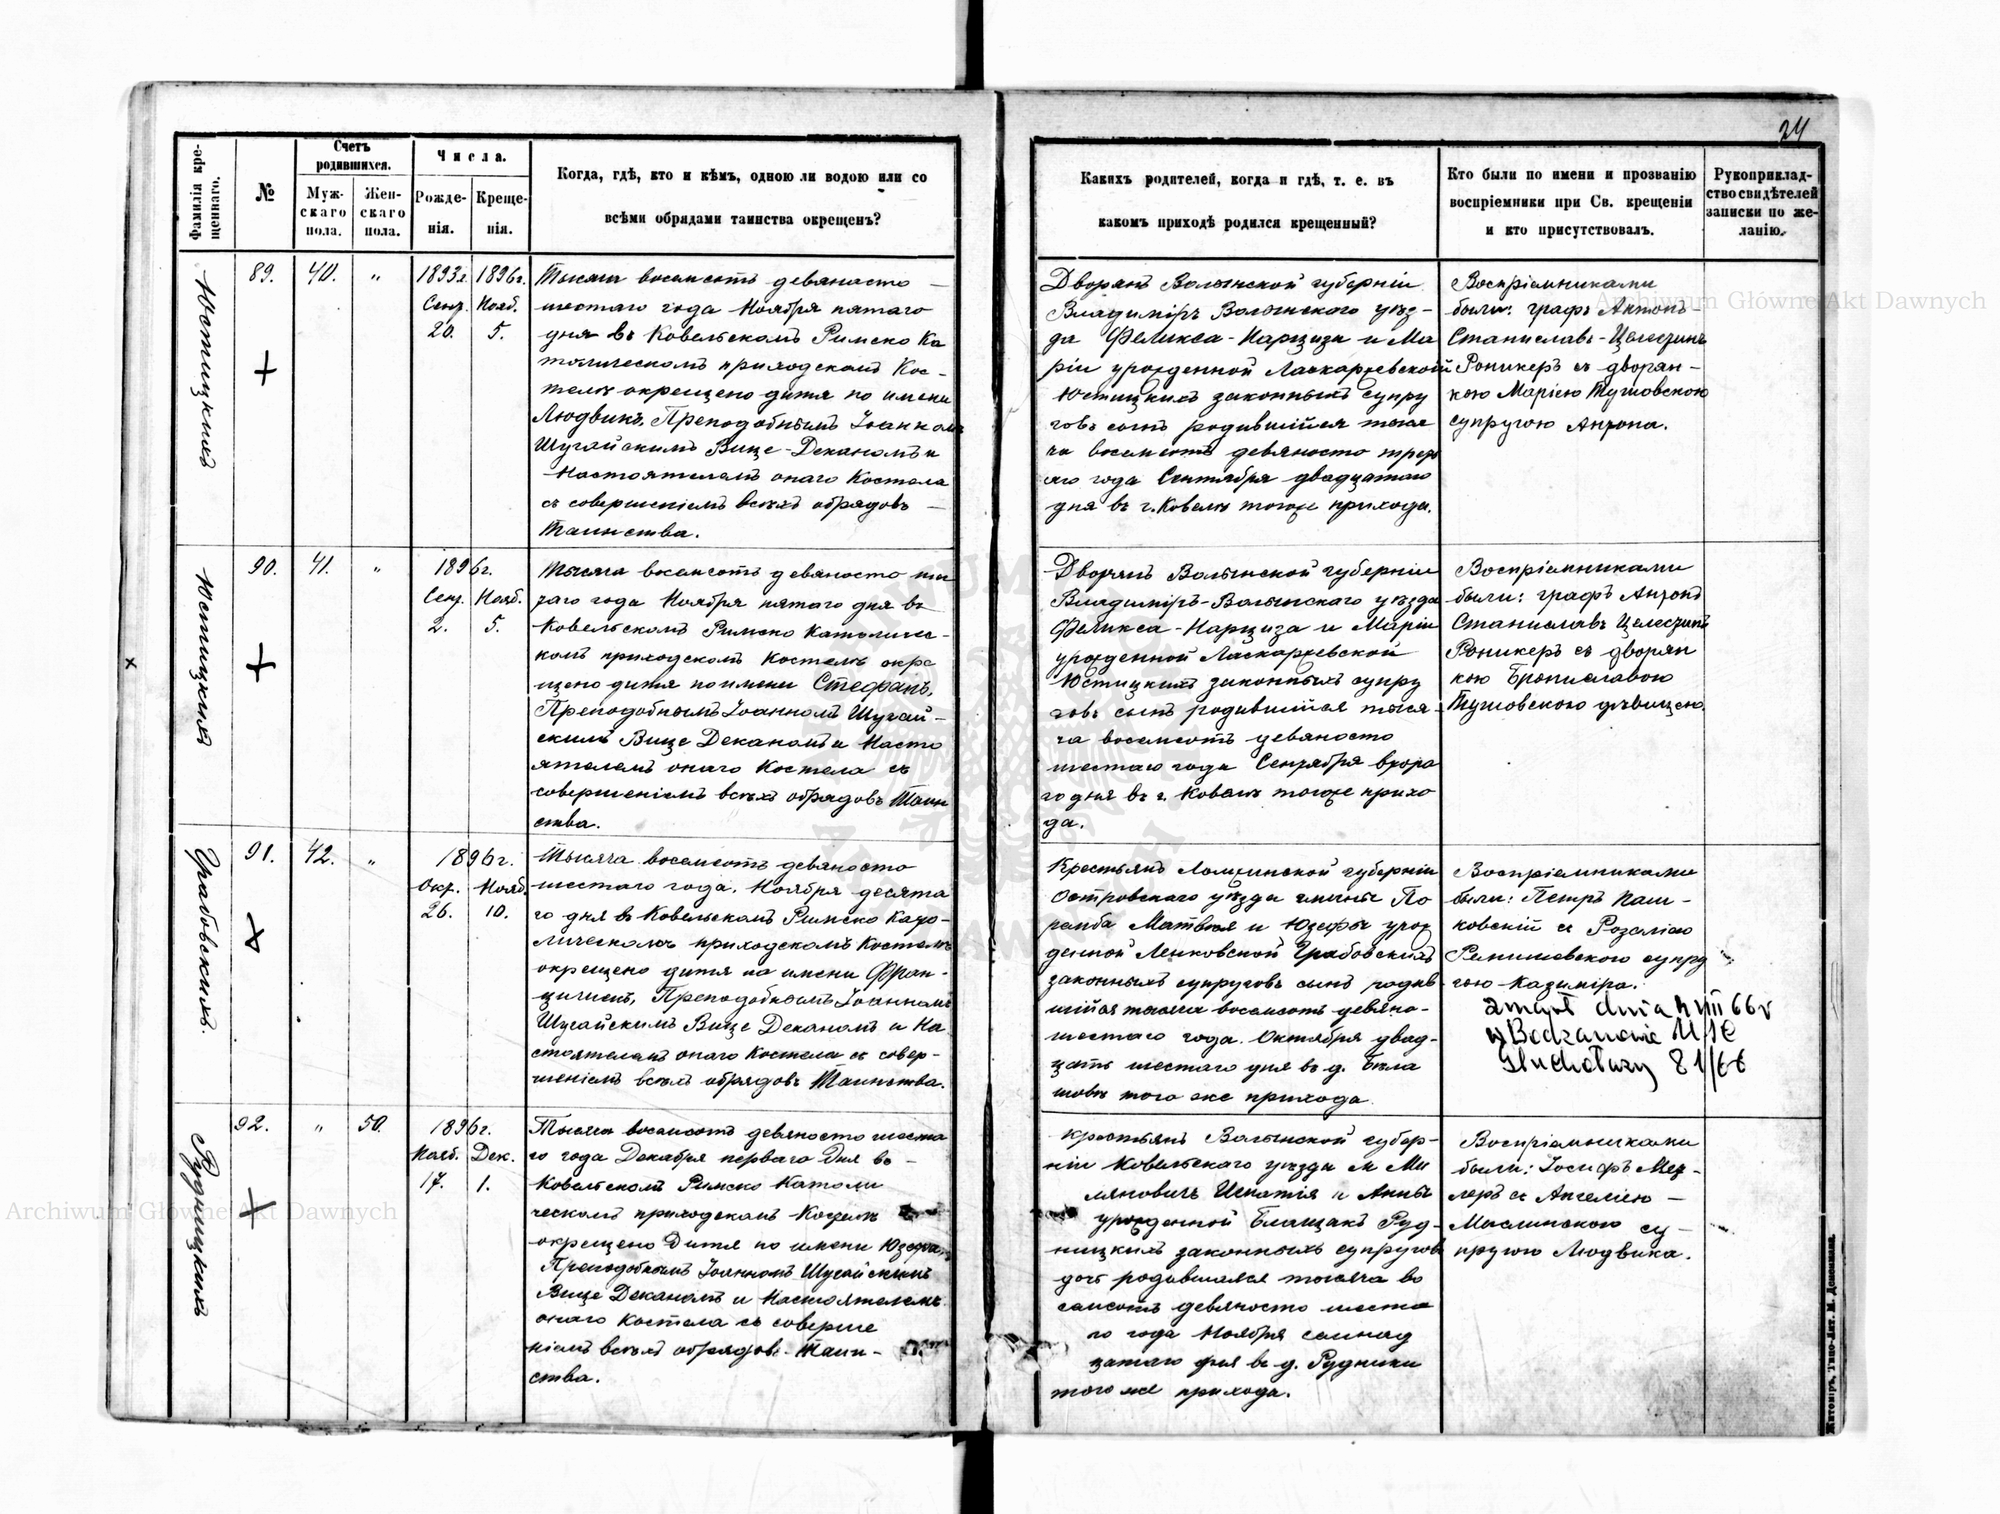 24
Фамилія кре-
щеннаго.
№
Счетъ
родившихся.
Муж-
скаго
пола.
Жен-
скаго
пола.
Числа.
Рожде-
нія.
Креще-
нія.
Когда, гдѣ, кто и кѣмъ, одною ли водою или со
всѣми обрядами таинства окрещенъ?
Какихъ родителей, когда и гдѣ, т. е. въ
какомъ приходѣ родился крещенный?
Кто были по имени и прозванію
воспріемники при Св. крещеніи
и кто присутствовалъ.
Рукоприклад-
ство свидѣтелей
записки по же-
ланію.
Юстицкихъ
89.
40.
"
1893г.
Сент.
20.
1896г.
Нояб.
5.
Тысяча восемсотъ девяносто
шестаго года Ноября пятаго
дня въ Ковельскомъ Римско Ка
толическомъ приходскомъ Кос-
телѣ окрещено дитя по имени
Людвикъ, Преподобнымъ Іоанномъ
Шугайскимъ Вице-Деканомъ и
Настоятелемъ онаго Костела
съ совершеніемъ всѣхъ обрядовъ
Таинства.
Дворянъ Волынской губерніи
Владиміръ Волынского уѣз-
да Феликса-Нарциза и Ма
ріи урожденной Ласкаржевской
Юстицкихъ законныхъ супру
говъ сынъ родившійся тыся
ча восемсотъ девяносто треть
яго года Сентября двадцатаго
дня въ г. Ковелѣ тогоже прихода.
Воспріемниками
были: графъ Антонъ-
Станиславъ-Целестинъ
Роникеръ съ дворян-
кою Маріею Тушовскою
супругою Антона.
Юстицкихъ
90.
41.
"
1896г.
Сент. Нояб.
2. 5.
Тысяча восемсотъ девяносто шес
таго года Ноября пятаго дня въ
Ковельскомъ Римско Католичес-
комъ приходскомъ Костелѣ окре
щено дитя по имени Стефанъ,
Преподобнымъ Іоанномъ Шугай-
скимъ Вице Деканомъ и Насто
ятелемъ онаго Костела съ
совершеніемъ всѣхъ обрядовъ Таин
ства.
Дворянъ Волынской губерніи
Владиміръ-Волынскаго уѣзда
Феликса-Нарциза и Маріи
урожденной Ласкаржевской
Юстицкихъ законныхъ супру
говъ сынъ родившійся тыся-
ча восемсотъ девяносто
шестаго года Сентября втора
го дня въ г. Ковелѣ тогоже прихо
да.
Воспріемниками
были: графъ Антонъ
Станиславъ Целестинъ
Роникеръ съ дворян
кою Брониславою
Тушовскою дѣвицею.
Грабовскихъ.
91.
42.
"
1896г.
Окт. Нояб.
26. 10.
Тысяча восемсотъ девяносто
шестаго года, Ноября десята
го дня въ Ковельскомъ Римско Като-
лическомъ приходскомъ Костелѣ
окрещено дитя по имени Фран-
цишекъ, Преподобнымъ Іоанномъ
Шугайскимъ Вице Деканомъ и На
стоятелемъ онаго Костела съ совер-
шеніемъ всѣхъ обрядовъ Таинства.
Крестьянъ Ломжинской губерніи
Островскаго уѣзда гмины По
ремба Матвѣя и Юзефы урож
денной Ленковской Грабовскихъ
законныхъ супруговъ сынъ родив
шійся тысяча восемсотъ девяно-
шестаго года Октября двад-
цать шестаго дня въ д. Бѣла
шовѣ того же прихода.
Воспріемниками
были: Петръ Паш-
ковскій съ Розаліею
Ремишевскою супру
гою Казиміра.
zmarł dnia VIII 66 r
w Bodzanowie USC
Głuchołazy 81/66
Рудницкихъ
92.
"
50.
1896г.
Нояб. Дек.
17. 1.
Тысяча восемсотъ девяносто шеста
го года Декабря перваго дня въ
Ковельскомъ Римско Католи
ческомъ приходскомъ Костелѣ
окрещено дитя по имени Юзефа,
Преподобнымъ Іоанномъ Шугайскимъ
Вице Деканомъ и Настоятелемъ
онаго Костела съ соверше
ніемъ всѣхъ обрядовъ Таин-
ства.
Крестьянъ Волынской губер-
ніи Ковельскаго уѣзда м. Ми
ляновичъ Игнатія и Анны
урожденной Блащакъ Руд-
ницкихъ законныхъ супруговъ
дочь родившаяся тысяча во
семсотъ девяносто шеста
го года Ноября семнад
цатаго дня въ д. Рудники
того же прихода.
Воспріемниками
были: Іосифъ Мец-
леръ съ Ангеліею
Маслинскою су-
пругою Людвика.
Житоміръ, Типо-Лит. М. Дененмана.
Archiwum Główne Akt Dawnych
Archiwum Główne Akt Dawnych